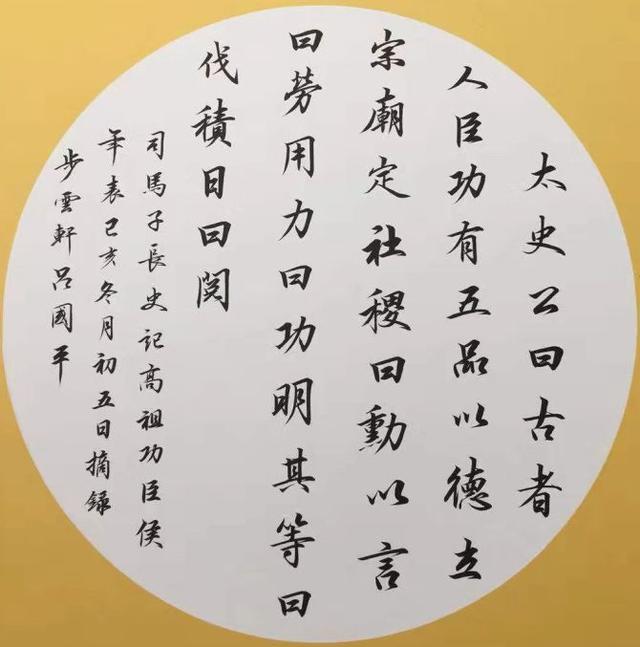 太史公曰古者
人臣功有五品以德立
宗廟定社稷曰勳以言
曰勞用力曰功明其等曰
伐積日曰閲
司馬子長史記高祖功臣侯
年表己亥冬月初五日摘錄
步雲軒呂國平